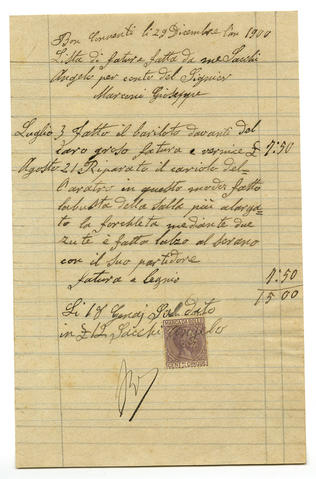 Bon Conventi li 29 Dicembre lan 1900
Lista di fature fatta da me Sacchi
Angelo per conto del Signier
Marconi Gioseppe
Luglio 3 fatto il bariloto davanti del
Caro groso fatura e vernice £ 7:50
Agosto 21 Riparato il cariolo del-
laratro in questo modo, fatto
la busta della Salla più alarga-
to la forchleta mediante due
è fatto lalzo al
con il suo partidore
fatura e legnio 7.50
15 00
Li 17 Saldato
in £ 12 Sacchi Angelo
MARCA DA BOLLO
CENT. CINQUE